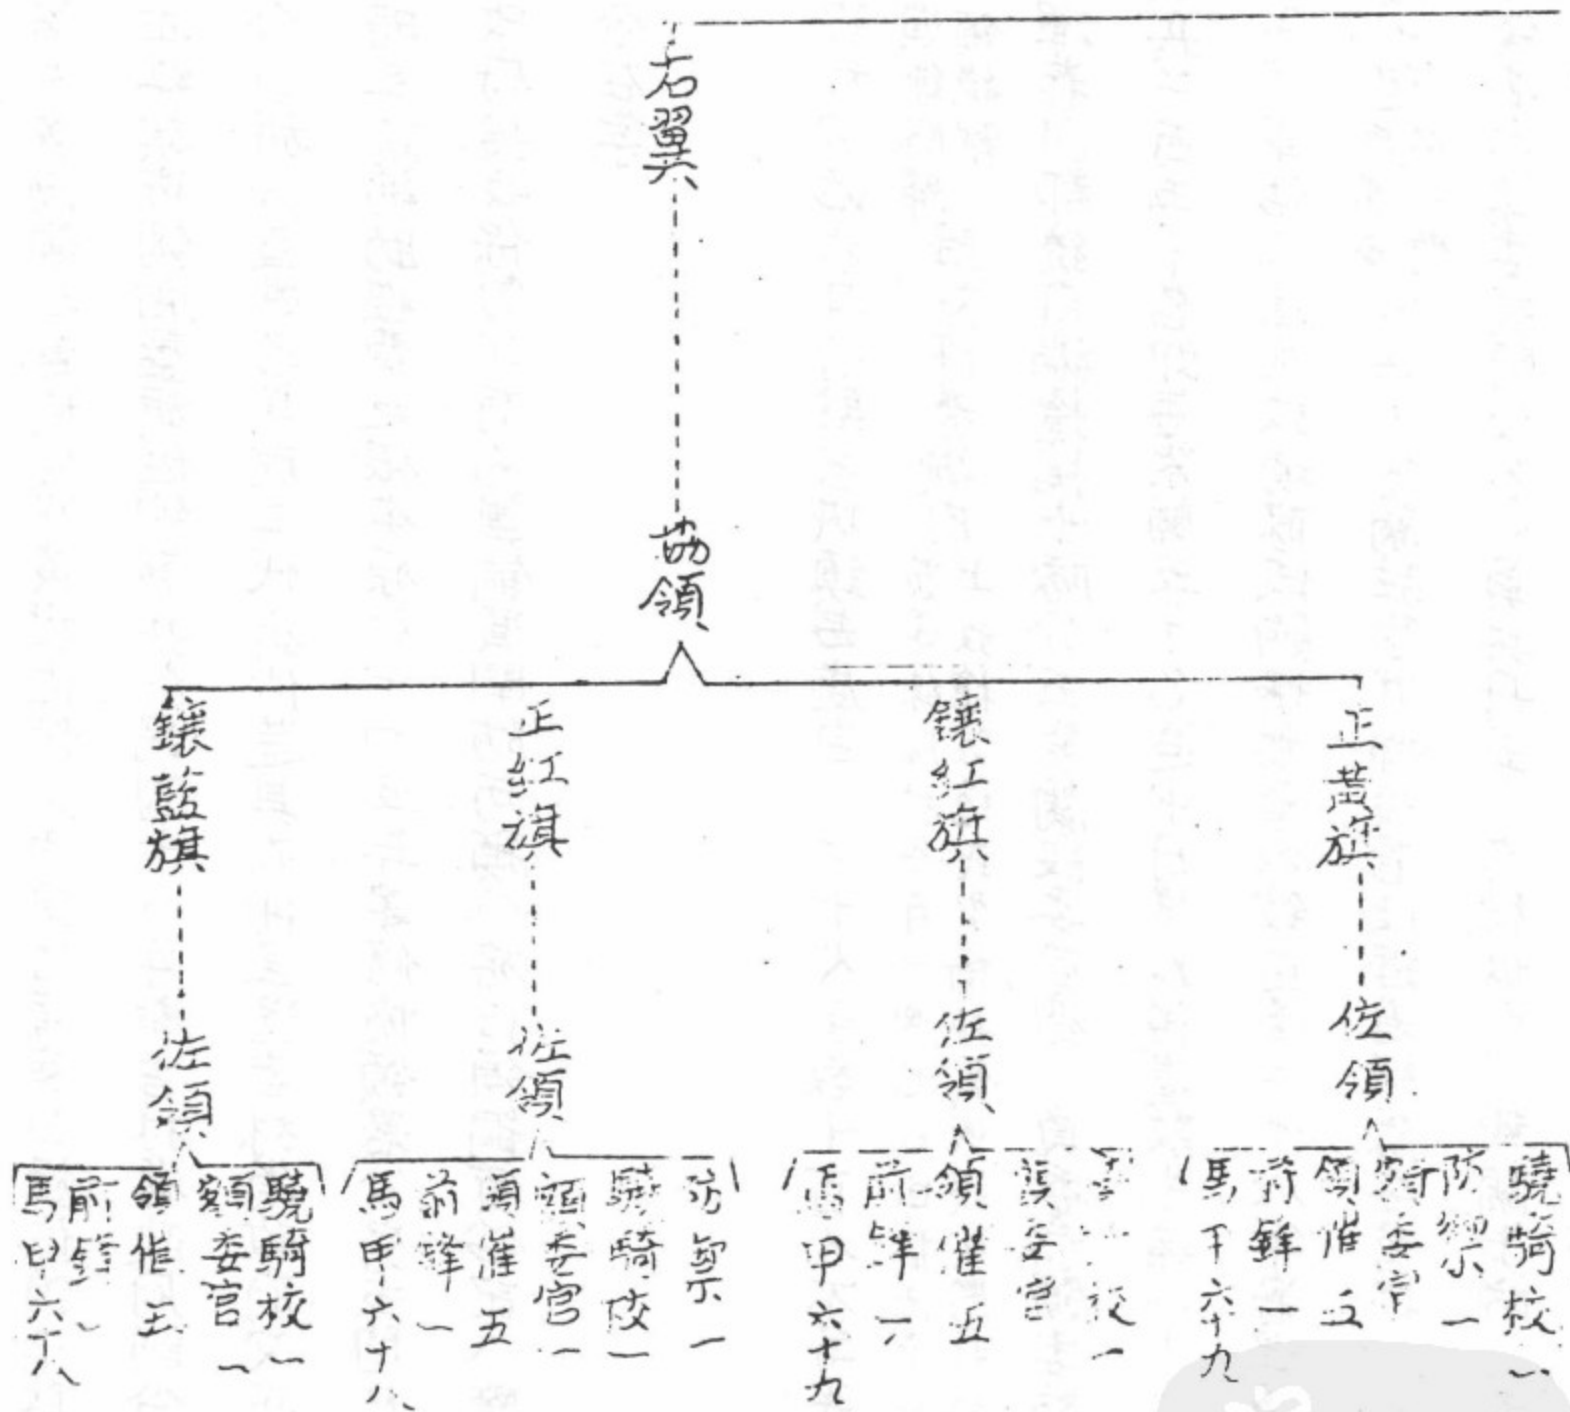 右翼
協領
正黃旗
佐領
驍騎校一
防禦一
額委官
領催五
前鋒一
馬甲六十九
鑲紅旗
佐領
校一
委官
領催五
前鋒一
馬甲六十九
正紅旗
佐領
防禦一
驍騎校一
額委官一
領催五
前鋒一
馬甲六十八
鑲藍旗
佐領
驍騎校一
額委官一
領催五
前鋒一
馬甲六十八